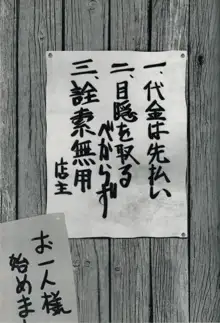 一、代金は先払い
二、目隠を取る
べからず
三、詮索無用
店主
お一人様
始めまし